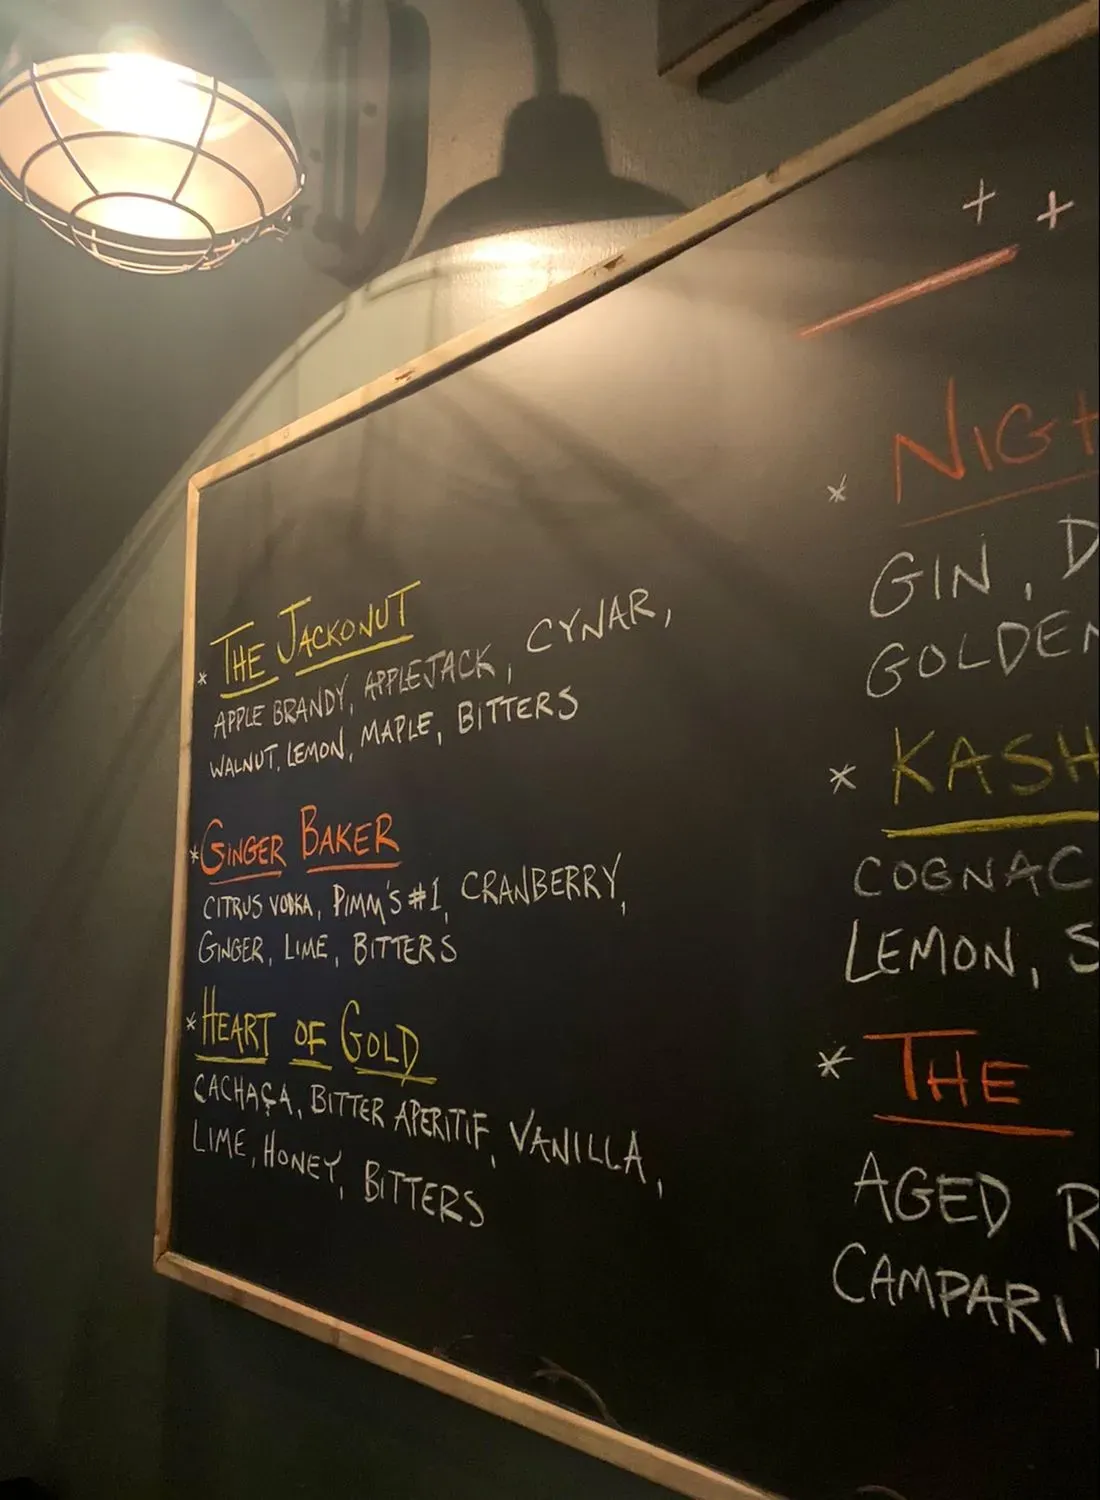 * THE JACKONUT
APPLE BRANDY, APPLEJACK, CYNAR,
WALNUT, LEMON, MAPLE, BITTERS
* GINGER BAKER
CITRUS VODKA, PIMM'S #1, CRANBERRY,
GINGER, LIME, BITTERS
* HEART OF GOLD
CACHAÇA, BITTER APERITIF, VANILLA,
LIME, HONEY, BITTERS
+ +
*
GIN,
* KASH
COGNAC
LEMON,
* THE
AGED
CAMPARI,